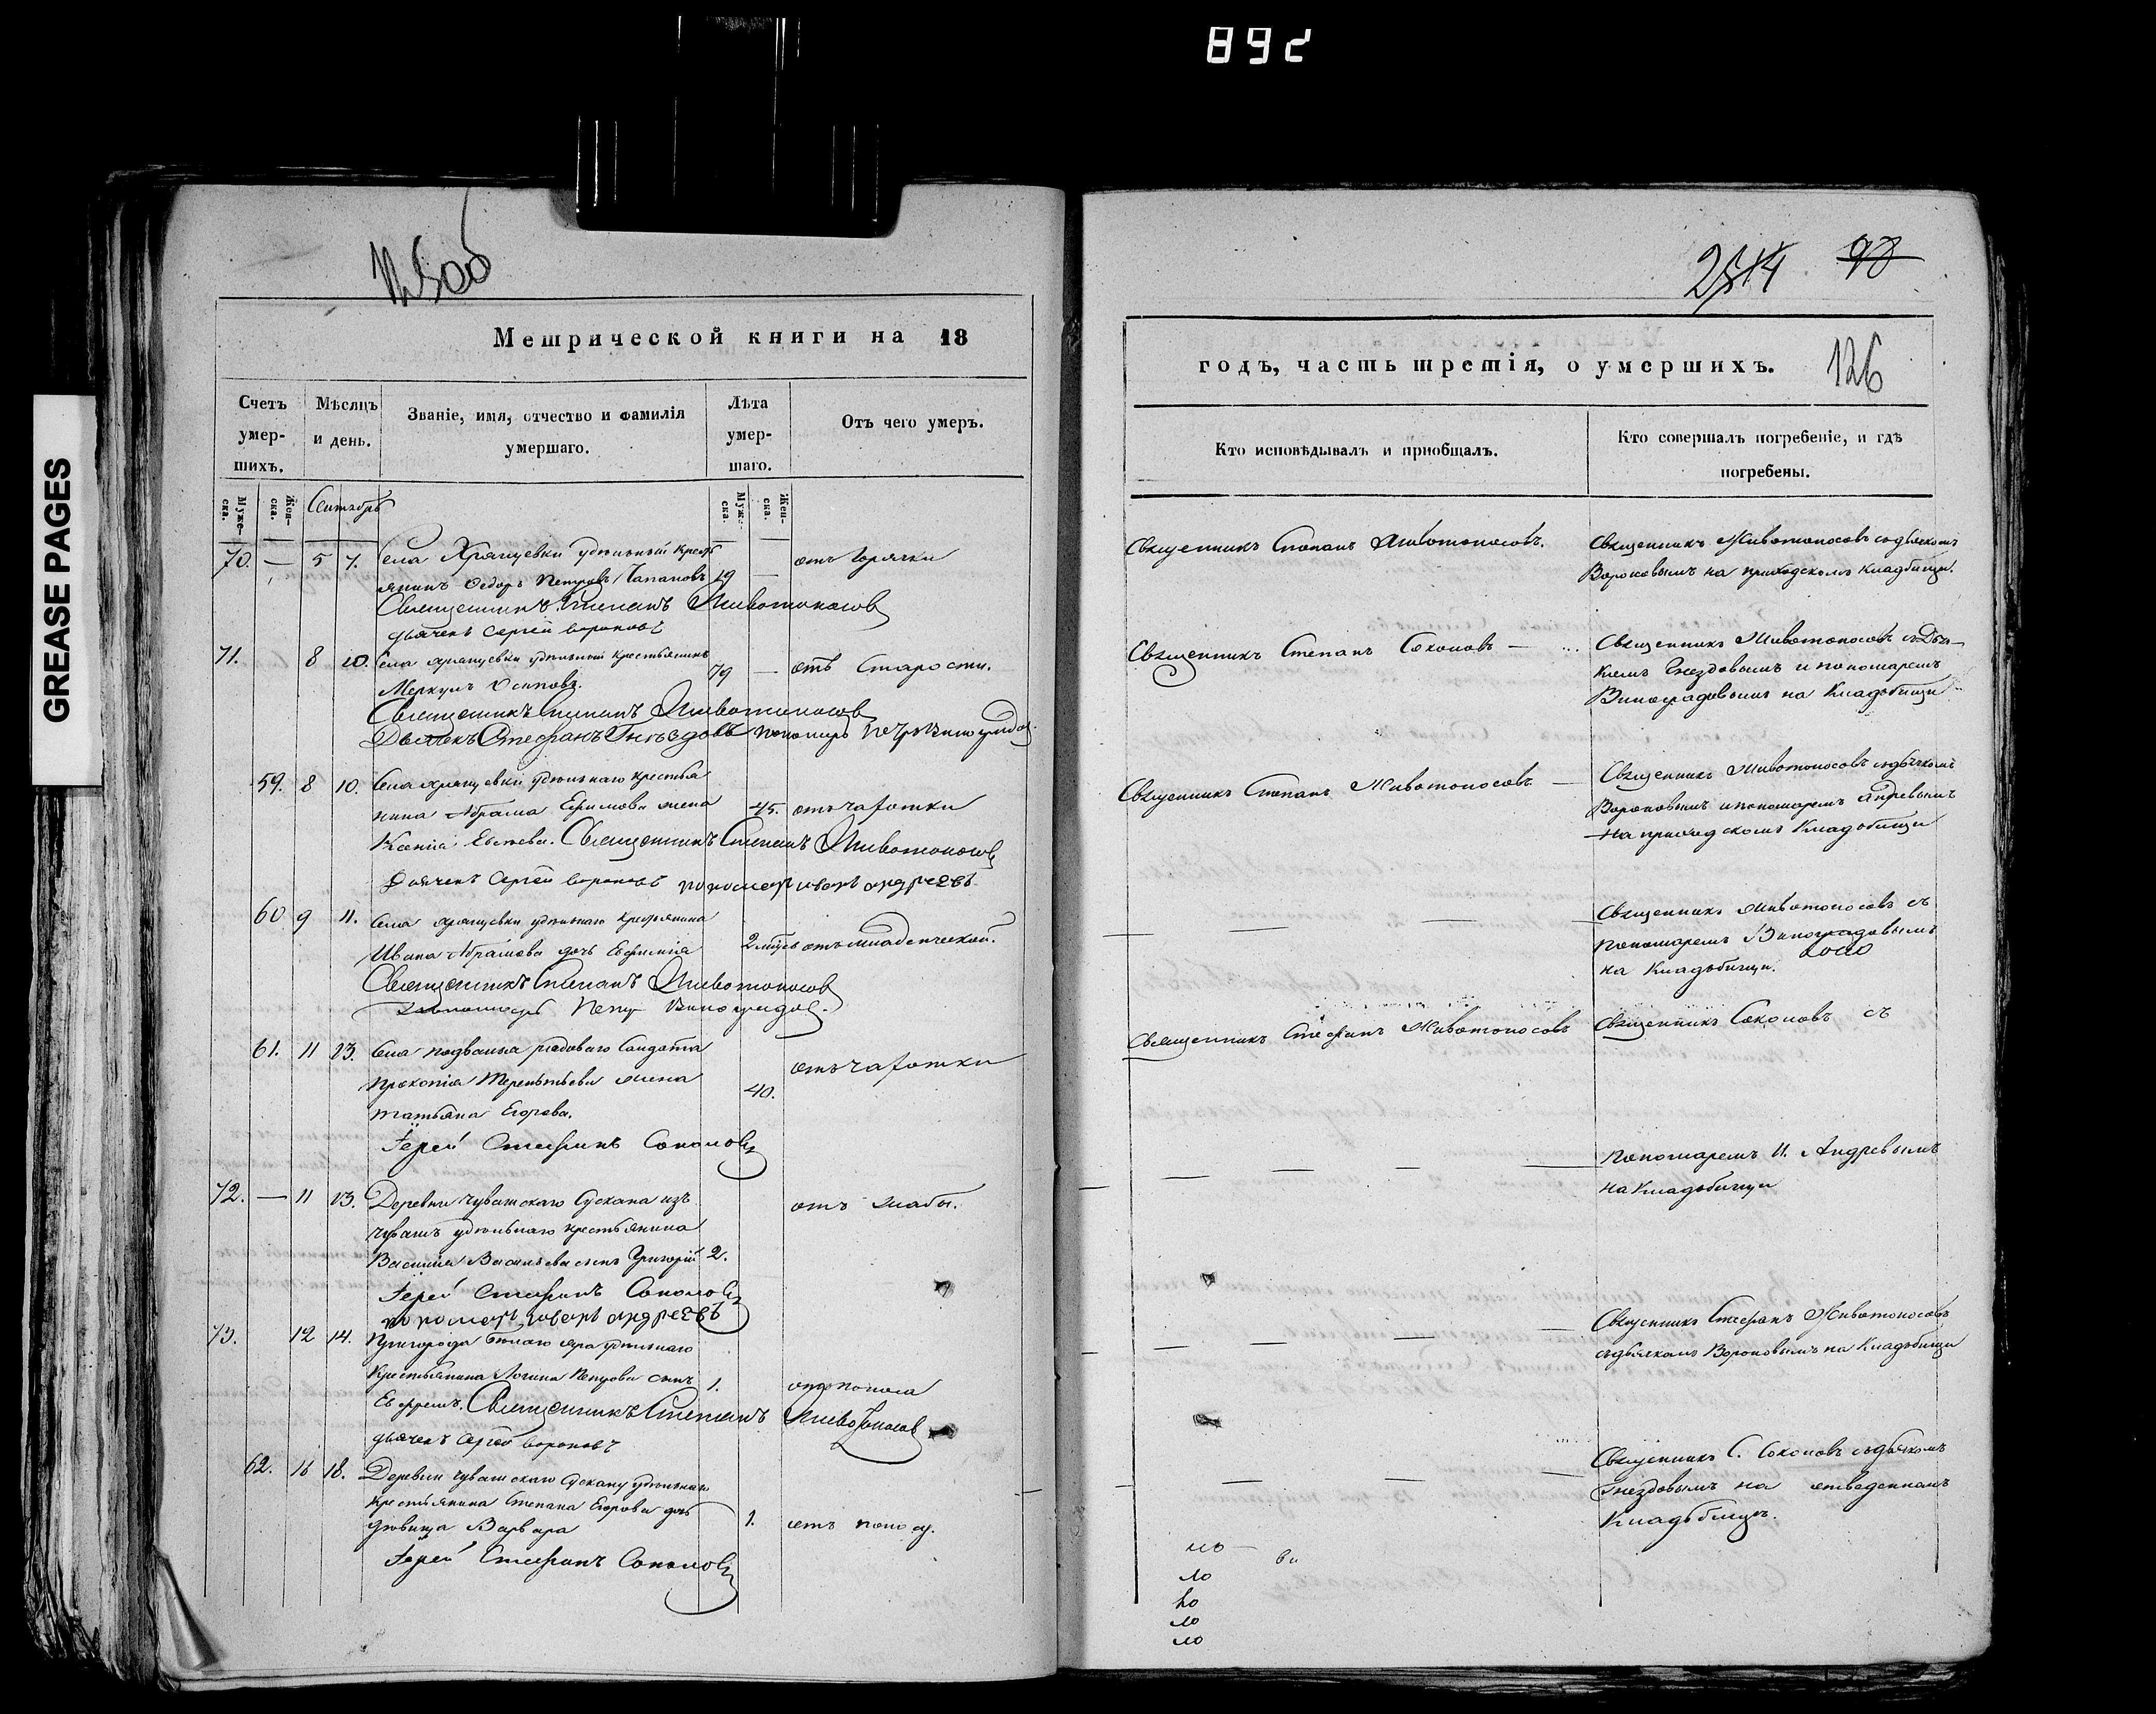 892
GREASE PAGES
125об
Метрической книги на 18
Счетъ умер-шихъ.
Мѣсяцъ и день.
Званіе, имя, отчество и фамилія умершаго.
Лѣта умер-шаго.
Отъ чего умеръ.
Муже-ска.
Жен-ска.
Сентябрь
Муже-ска.
Жен-ска.
70. — 5 7. Села Хрящевки удѣльный крест
янинъ Ѳедоръ Петровъ Чапановъ 19 — отъ горячки
Священникъ Степанъ Животоносовъ
дьячекъ Сергей Вороновъ
71. 8 10. Села Хрящевки удѣльный крестьянинъ
Меркулъ Осиповъ. 79 — отъ старости.
Священникъ Степанъ Животоносовъ
Дьячекъ Стефанъ Гнѣздовъ пономарь Петръ Виноградов
59. 8 10. Села Хрящевки удѣльнаго крестья
нина Абрама Ефимова жена 45. отъ чахотки
Ксенія Евтеева. Священникъ Степанъ Животоносовъ
Дьячекъ Сергей Вороновъ пономарь иванъ андреевъ
60 9 11. Села Хрящевки удѣльнаго крестьянина
Ивана Абрамова дочь Евфимія 2 мѣсцъ отъ младенческой.
Священникъ Степанъ Животоносовъ
Пономарь Петр Виноградов.
61. 11 13. Села подвалья рядоваго солдата
Прокопія Терентьева жена 40. отъ чахотки
татьяна Егорова.
Іерей Стефанъ Соколовъ
72. — 11 13. Деревни Чувашскаго Сускана изъ отъ слабы.
чувашъ удѣльнаго крестьянина
Василія Васильева сынъ Григорій 2.
Іерей Стефанъ Соколовъ
пономарь иванъ андреевъ
73. 12 14. Пригорода Бѣлаго яра удѣльнаго
Крестьянина Логина Петрова сынъ 1. отъ поноса
Ефремъ. Священникъ Степанъ Животоносов
дьячекъ Сергей Вороновъ
62. 16 18. Деревни Чувашскаго Сускану удѣльнаго
крестьянина Степана Егорова дочь
дѣвица Варвара 1. отъ поносу.
Іерей Стефанъ Соколовъ
98
годъ, часть третія, о умершихъ.
126
Кто исповѣдывалъ и пріобщалъ.
Кто совершалъ погребеніе, и гдѣ погребены.
Священникъ Степанъ Животоносовъ.
Священникъ Животоносовъ съ дьячкомъ
Вороновымъ на приходскомъ кладбищи.
Священникъ Степанъ Соколовъ —
Священникъ Животоносовъ съ Дья-
чкомъ Гнездовымъ и пономаремъ
Виноградовымъ на Кладбищи
Священникъ Степанъ Животоносовъ —
Священникъ Животоносовъ съ дьячкомъ
Вороновымъ и пономаремъ Андревымъ
На приходскомъ Кладбищи
Священникъ Животоносовъ съ
пономаремъ Виноградовымъ
на Кладбищи.
Священникъ Стефанъ Животоносовъ
Священникъ Соколовъ съ
пономаремъ И. Андревымъ
на Кладбищи
Священникъ Стефанъ Животоносовъ
съ дьячкомъ Вороновымъ на Кладбищи
Священникъ С. Соколовъ съ дьячкомъ
Гнездовымъ на отведенномъ
Кладбищѣ.